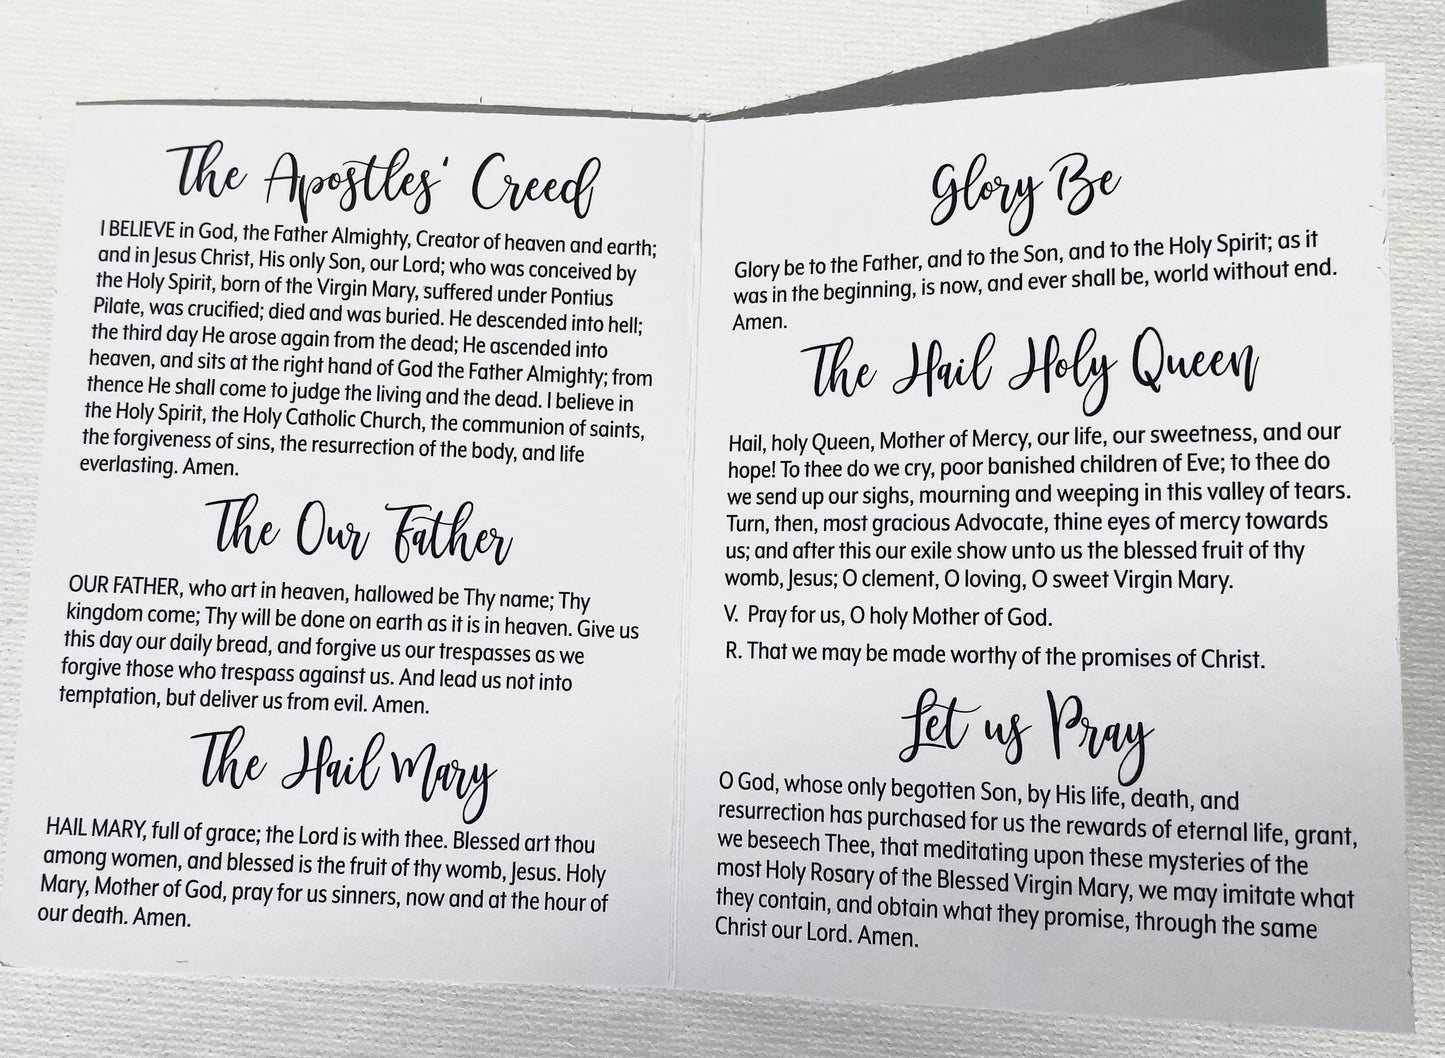 The Apostles' Creed
I BELIEVE in God, the Father Almighty, Creator of heaven and earth;
and in Jesus Christ, His only Son, our Lord; who was conceived by
the Holy Spirit, born of the Virgin Mary, suffered under Pontius
Pilate, was crucified; died and was buried. He descended into hell;
the third day He arose again from the dead; He ascended into
heaven, and sits at the right hand of God the Father Almighty; from
thence He shall come to judge the living and the dead. I believe in
the Holy Spirit, the Holy Catholic Church, the communion of saints,
the forgiveness of sins, the resurrection of the body, and life
everlasting. Amen.
The Our Father
OUR FATHER, who art in heaven, hallowed be Thy name; Thy
kingdom come; Thy will be done on earth as it is in heaven. Give us
this day our daily bread, and forgive us our trespasses as we
forgive those who trespass against us. And lead us not into
temptation, but deliver us from evil. Amen.
The Hail Mary
HAIL MARY, full of grace; the Lord is with thee. Blessed art thou
among women, and blessed is the fruit of thy womb, Jesus. Holy
Mary, Mother of God, pray for us sinners, now and at the hour of
our death. Amen.
Glory Be
Glory be to the Father, and to the Son, and to the Holy Spirit; as it
was in the beginning, is now, and ever shall be, world without end.
Amen.
The Hail Holy Queen
Hail, holy Queen, Mother of Mercy, our life, our sweetness, and our
hope! To thee do we cry, poor banished children of Eve; to thee do
we send up our sighs, mourning and weeping in this valley of tears.
Turn, then, most gracious Advocate, thine eyes of mercy towards
us; and after this our exile show unto us the blessed fruit of thy
womb, Jesus; O clement, O loving, O sweet Virgin Mary.
V. Pray for us, O holy Mother of God.
R. That we may be made worthy of the promises of Christ.
Let us Pray
O God, whose only begotten Son, by His life, death, and
resurrection has purchased for us the rewards of eternal life, grant,
we beseech Thee, that meditating upon these mysteries of the
most Holy Rosary of the Blessed Virgin Mary, we may imitate what
they contain, and obtain what they promise, through the same
Christ our Lord. Amen.